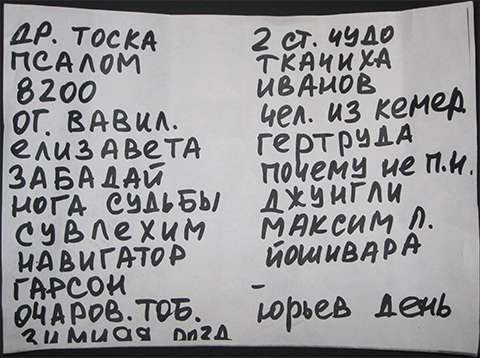 ДР. ТОСКА
ПСАЛОМ
8200
ОГ. ВАВИЛ.
ЕЛИЗАВЕТА
ЗАБАДАЙ
НОГА СУДЬБЫ
СУВЛЕХИМ
НАВИГАТОР
ГАРСОН
ОЧАРОВ. ТОБ.
ЗИМНЯЯ РОЗА
2 СТ. ЧУДО
ТКАЧИХА
ИВАНОВ
ЧЕЛ. ИЗ КЕМЕР.
ГЕРТРУДА
ПОЧЕМУ НЕ П.Н.
ДЖУНГЛИ
МАКСИМ Л.
ЙОШИВАРА
-
ЮРЬЕВ ДЕНЬ